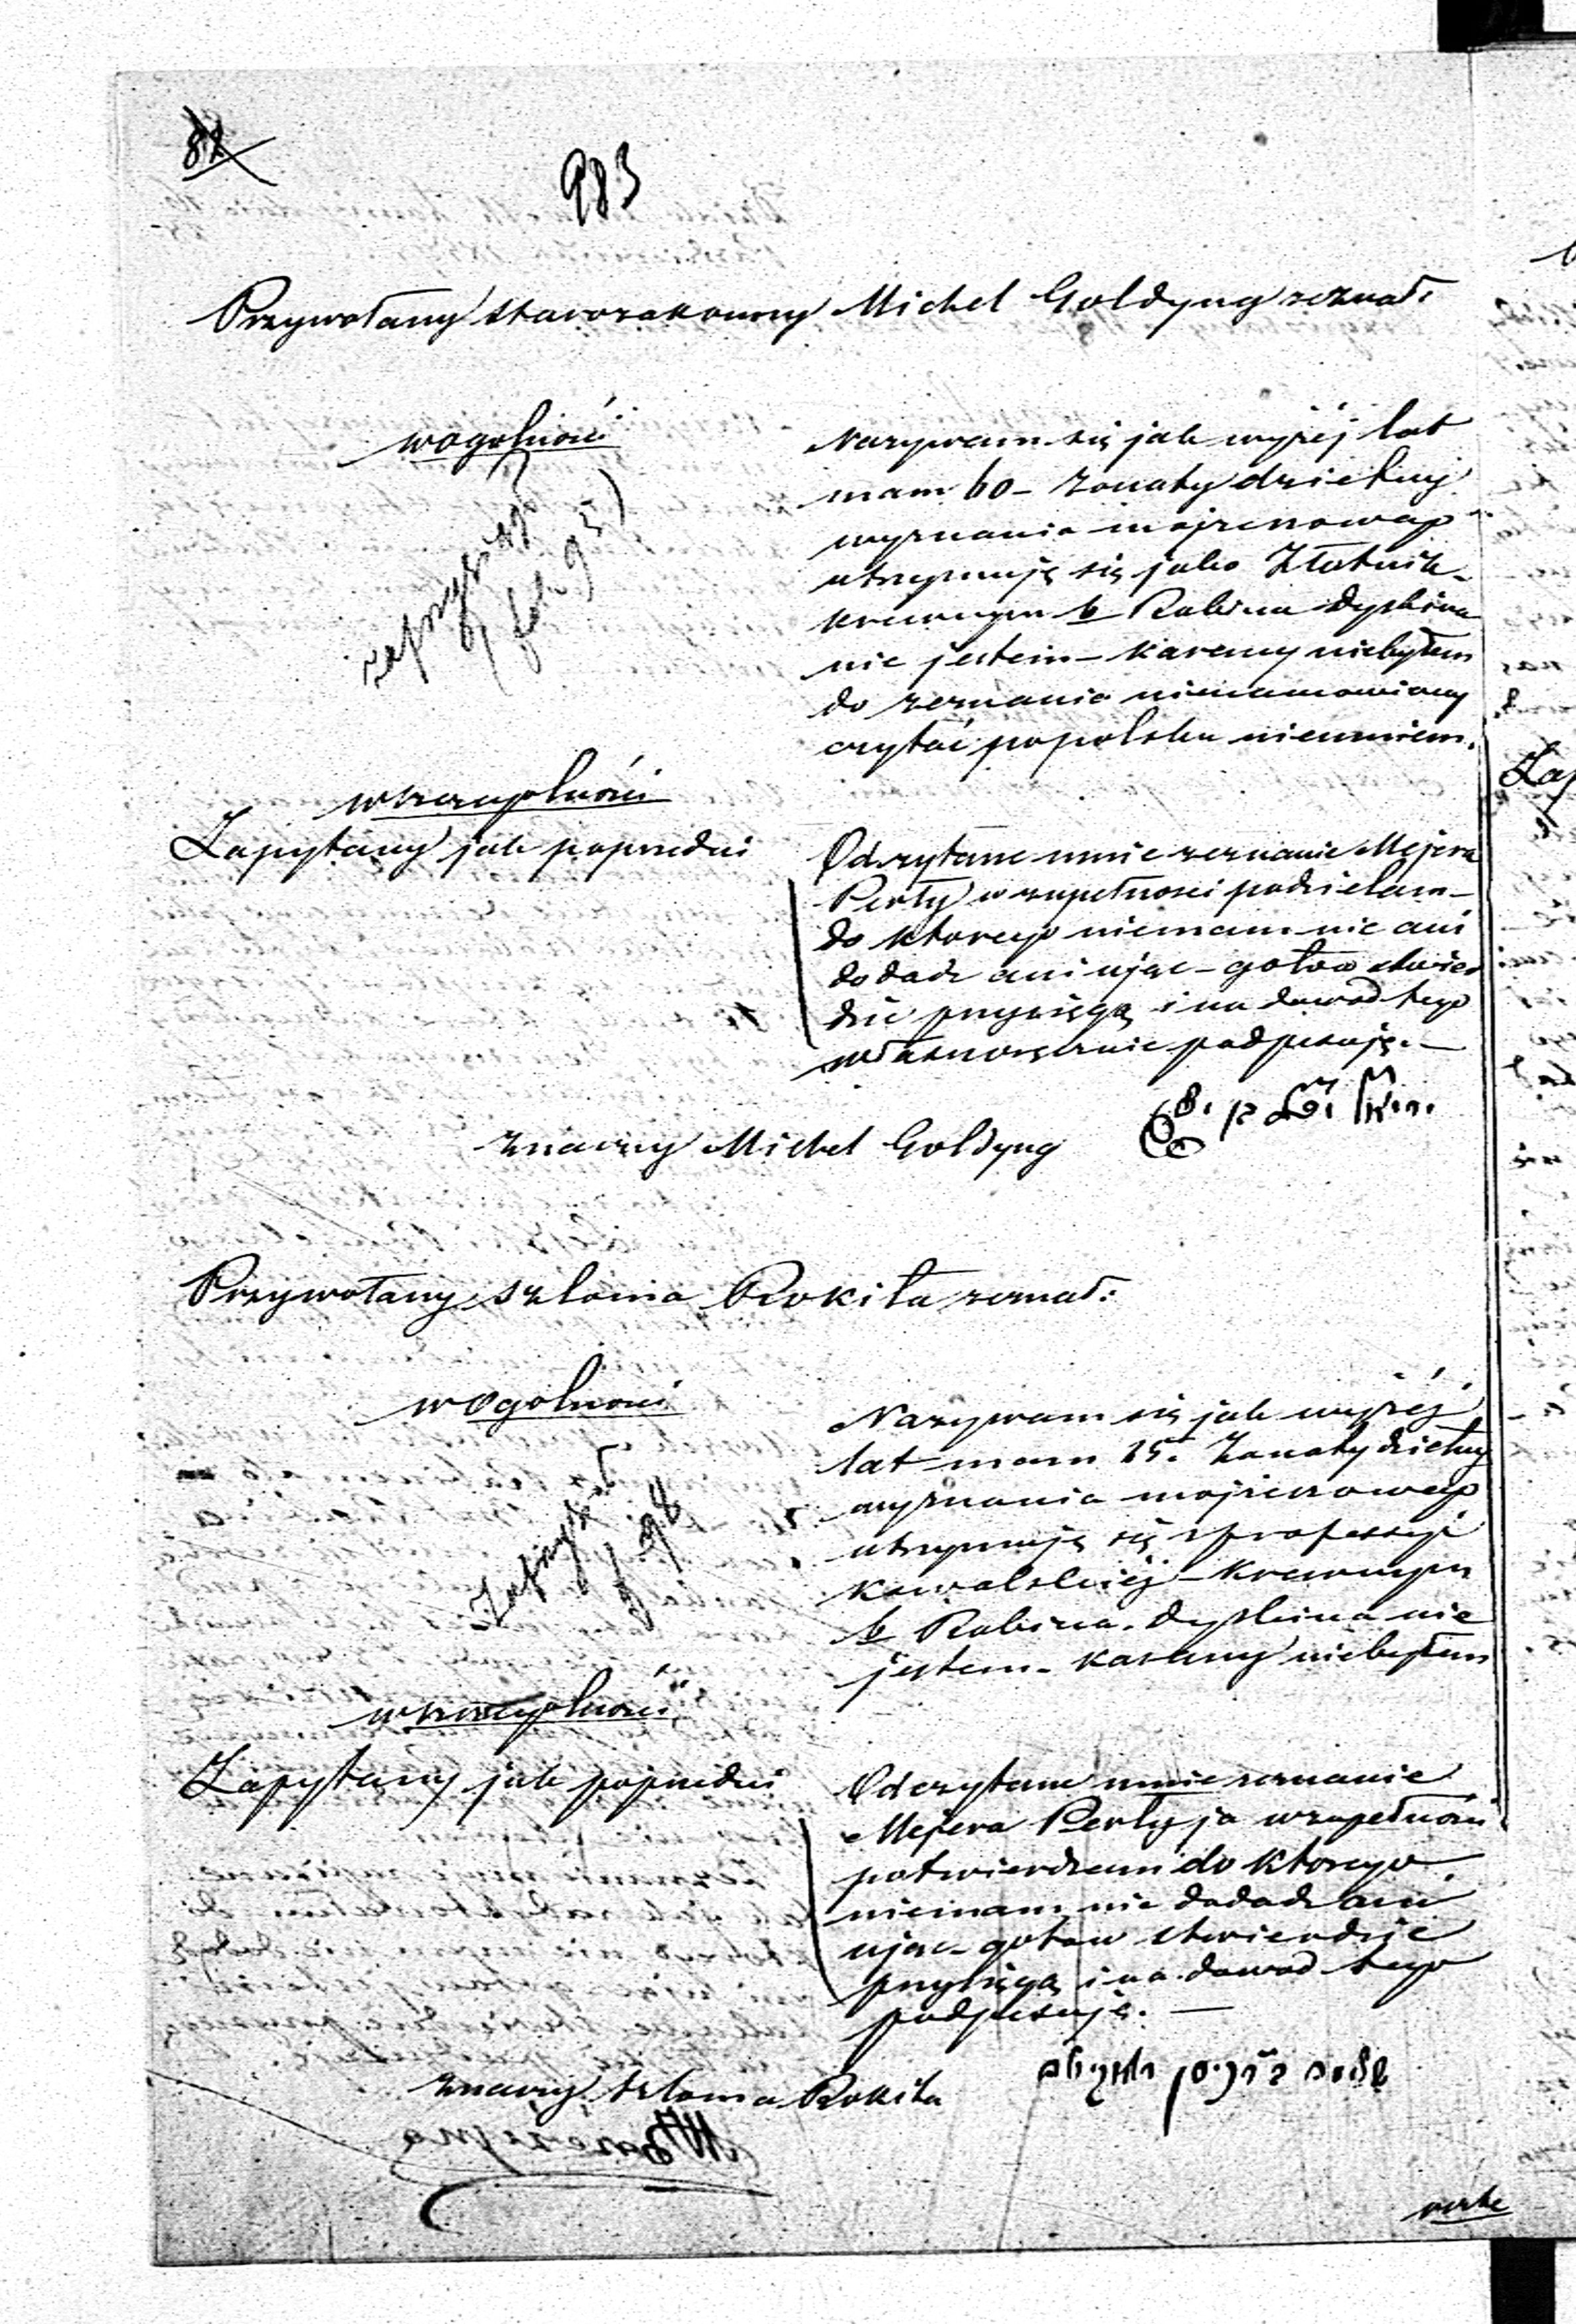 82
983
Przywołany starozakonny Michel Goldyng zeznał:
wogolności
zaprzysiągł
Nazywam się jak wyżéj lat
mam 60 – żonaty dzietny
wyznania mojżeszowego
utrzymuję się jako Złotnik –
krewnym b Rabina Dyskina
nie jestem – karany niebyłem
do zeznania nienamowiony
czytać popolsku nieumiem.
wszczegolności
Zapytany jak poprzedni
Odczytane mnie zeznanie Mejera
Perły w zupełnosci podzielam –
do ktorego niemam nic ani
dodadz ani ująć – gotow stwier
dzić przysięgą i na dowod tego
własnoręcznie podpisuję. –
znaczy Michel Goldyng
Przywołany Szloma Rokita zeznał:
wogolnosci
Zaprzysiągł
Nazywam się jak wyżéj
lat mam 25. Żonaty dzietny
wyznania mojżeszowego
utrzymuję się z professyi
kowalskiéj – krewnym
b Rabina Dyskina nie
jestem – karany niebyłem
wszczegolności
Zapytany jak poprzedni
Odczytane mnie zeznanie
Mejera Perły ja wzupełności
potwierdzam do ktorego
niemam nic dodadz ani
ująć – gotow stwierdzić
przysięgą i na dowod tego
podpisuję. –
znaczy Szloma Rokita
verte